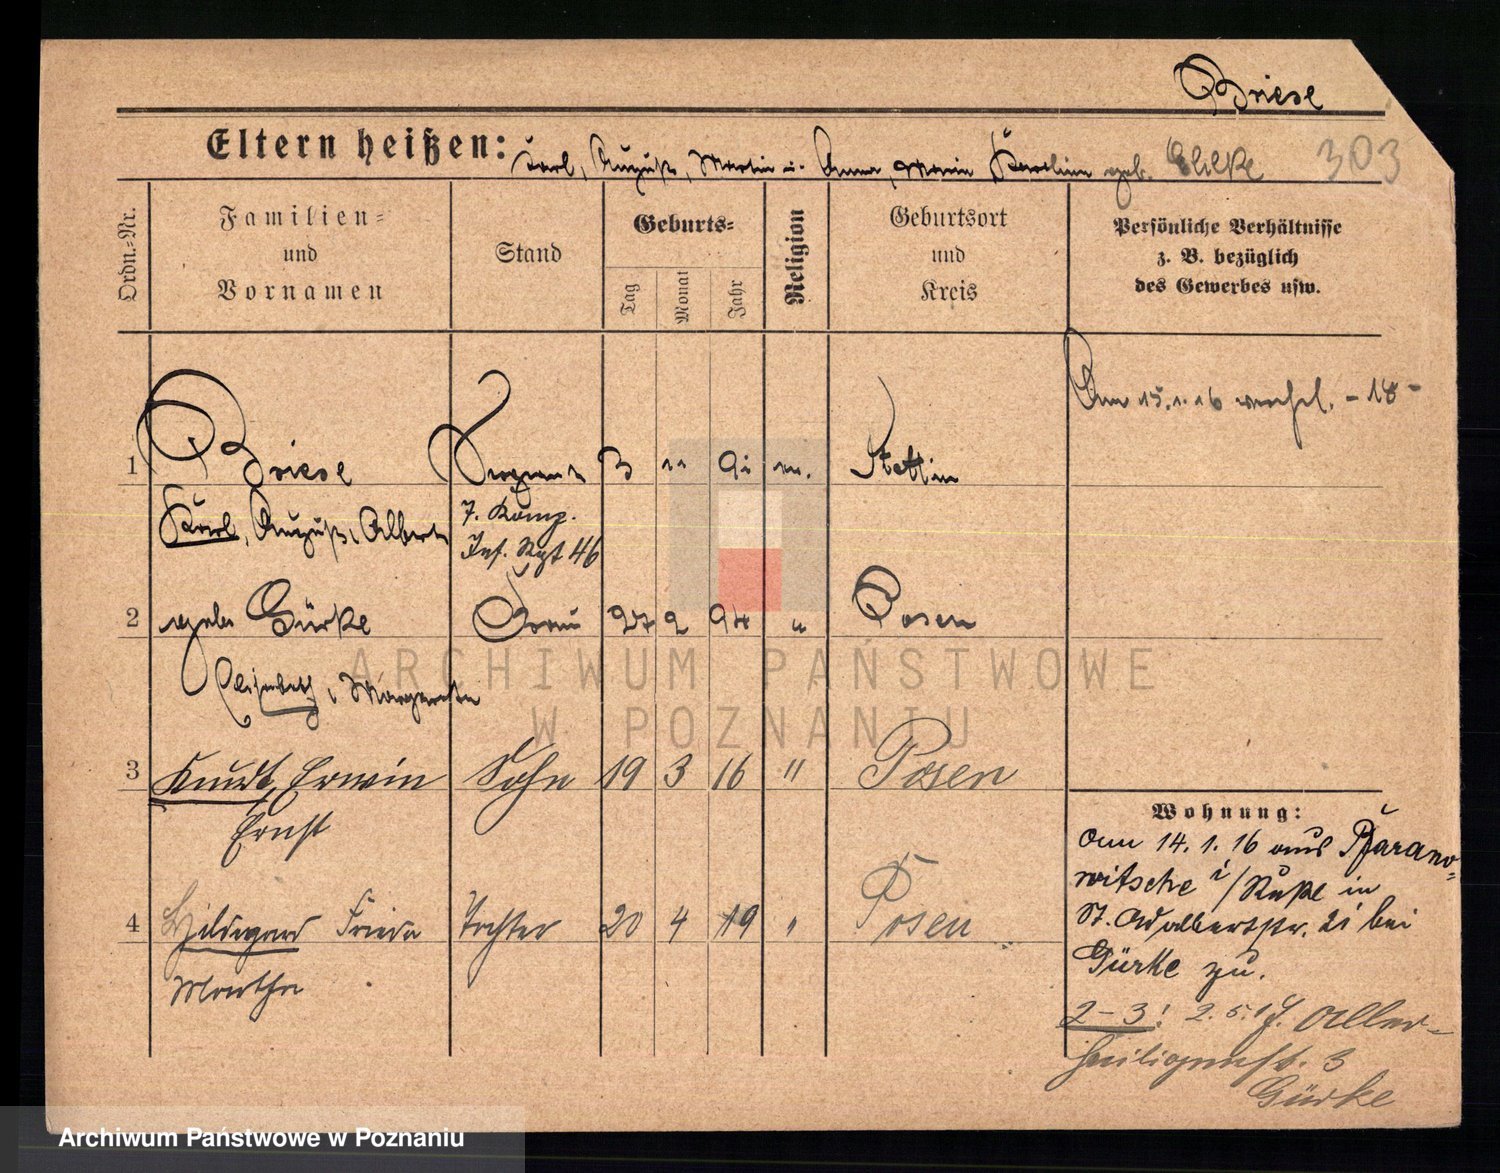 Briese
Eltern heißen: Karl, August, Martin u. Anna, Maria Karoline geb. Ehlke
303
Ordn.-Nr.
Familien-
und
Vornamen
Stand
Geburts-
Tag
Monat
Jahr
Religion
Geburtsort
und
Kreis
Persönliche Verhältnisse
z. B. bezüglich
des Gewerbes usw.
Am 15.1.16 - 18 -
1 Briese Sergeant 3 11 91 ev. Stettin
Karl, August, Albert
7. Komp.
Inf. Rgt 46
2 geb. Gürke Frau 27 2 94 " Posen
Elisabeth, Margarethe
3 Kurt, Erwin Sohn 19 3 16 " Posen
Ernst
4 Hildegard Frieda Tochter 20 4 19 " Posen
Martha
Wohnung:
Am 14.1.16 aus Baranow-
witsche i/Rußl in
St. Adalbertstr. 21 bei
Gürke zu.
2-3! 2.5.17. Aller-
heiligenst. 3
Gürke
ARCHIWUM PAŃSTWOWE
W POZNANIU
Archiwum Państwowe w Poznaniu